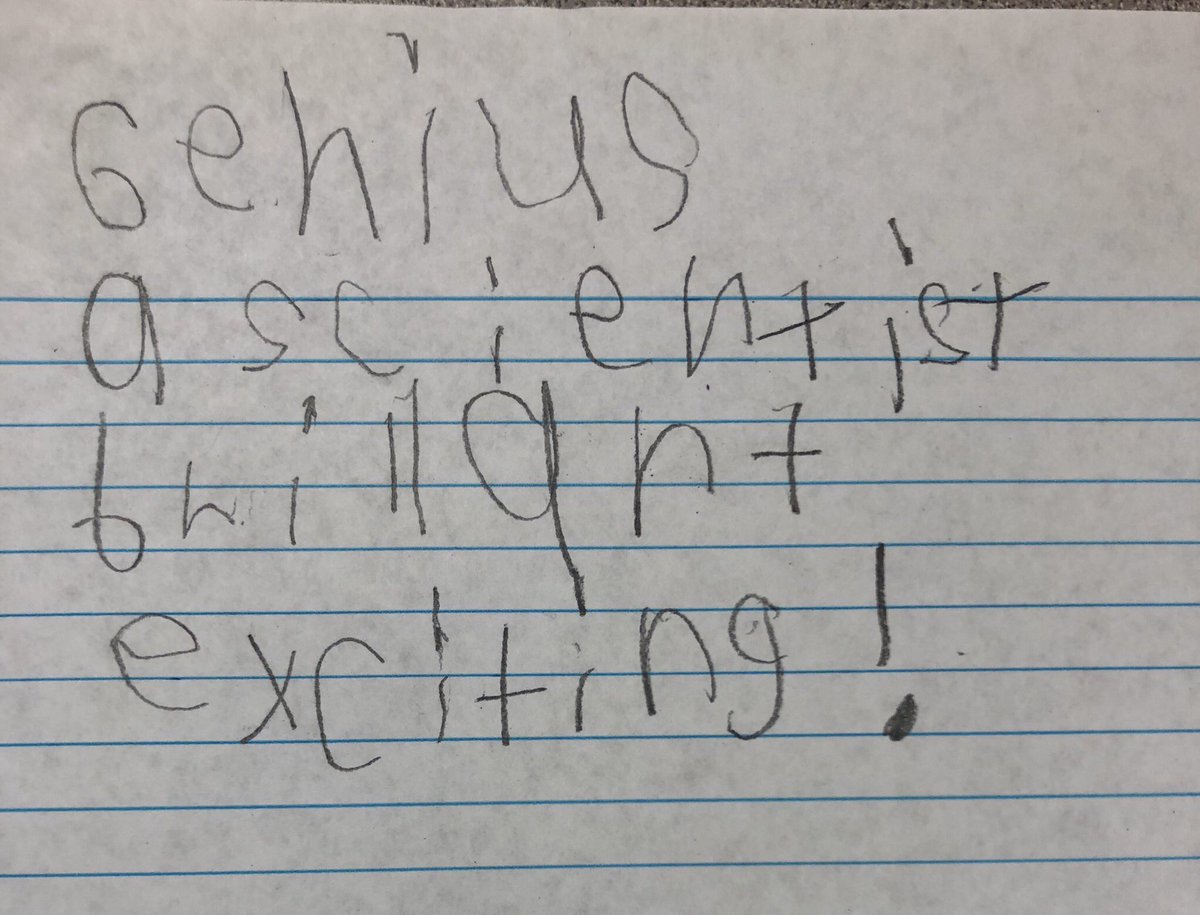 Genius
a scientist
brillant
exciting!